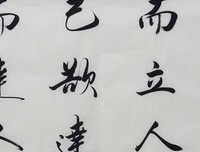 而立人
己欲達
而達人